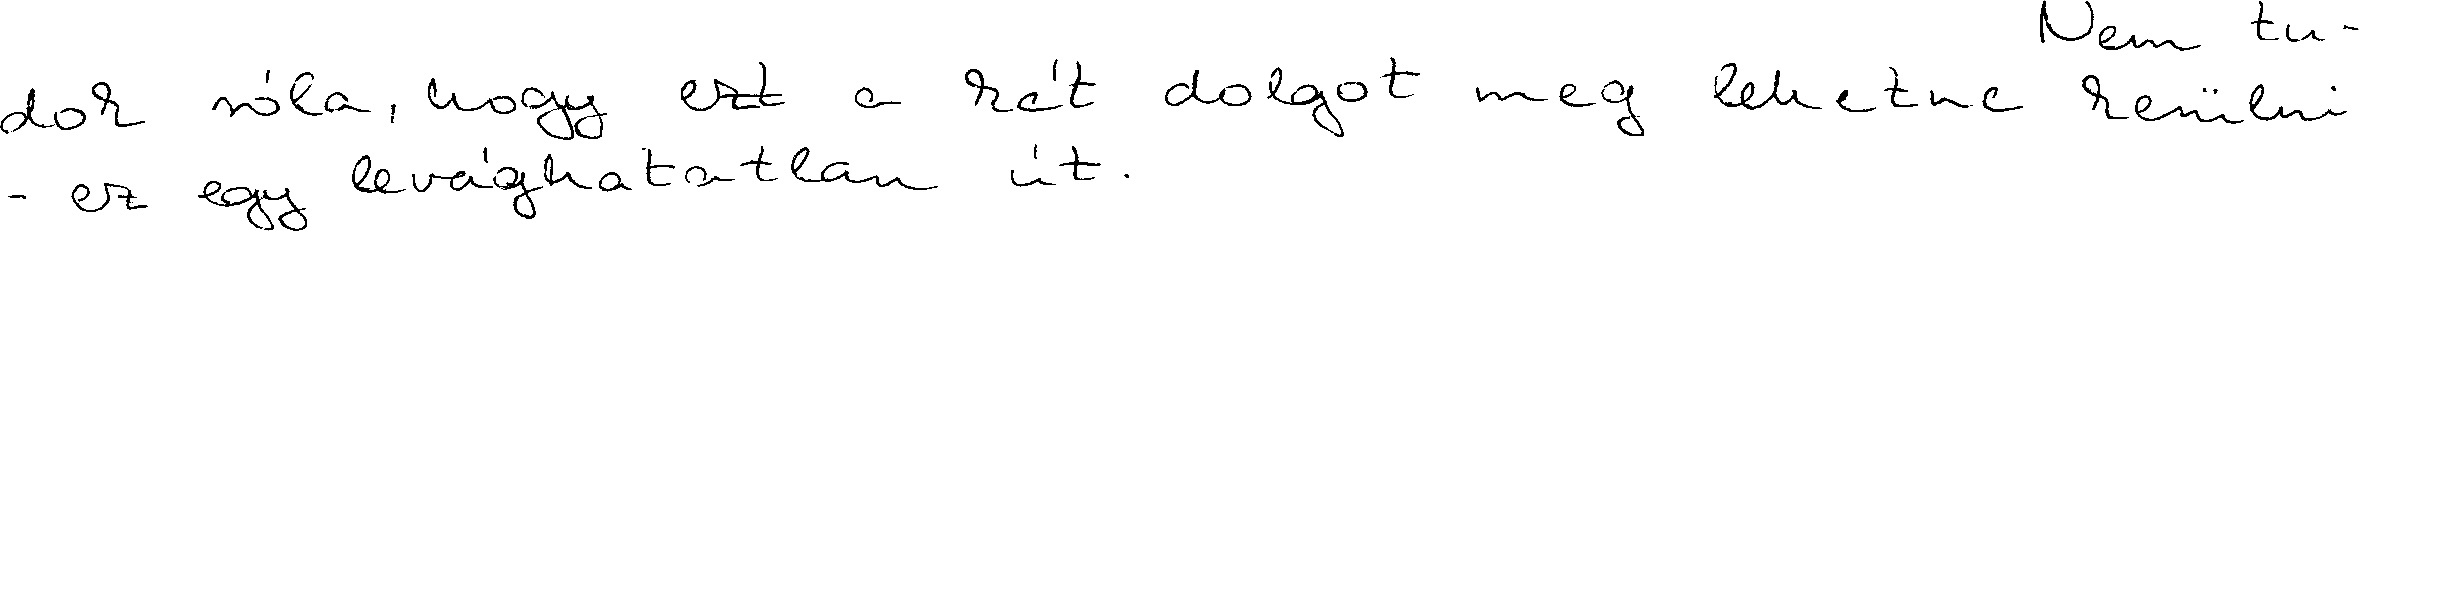 Nem tu-
dok róla, hogy ezt a két dolgot meg lehetne kerülni
- ez egy levághatatlan út.